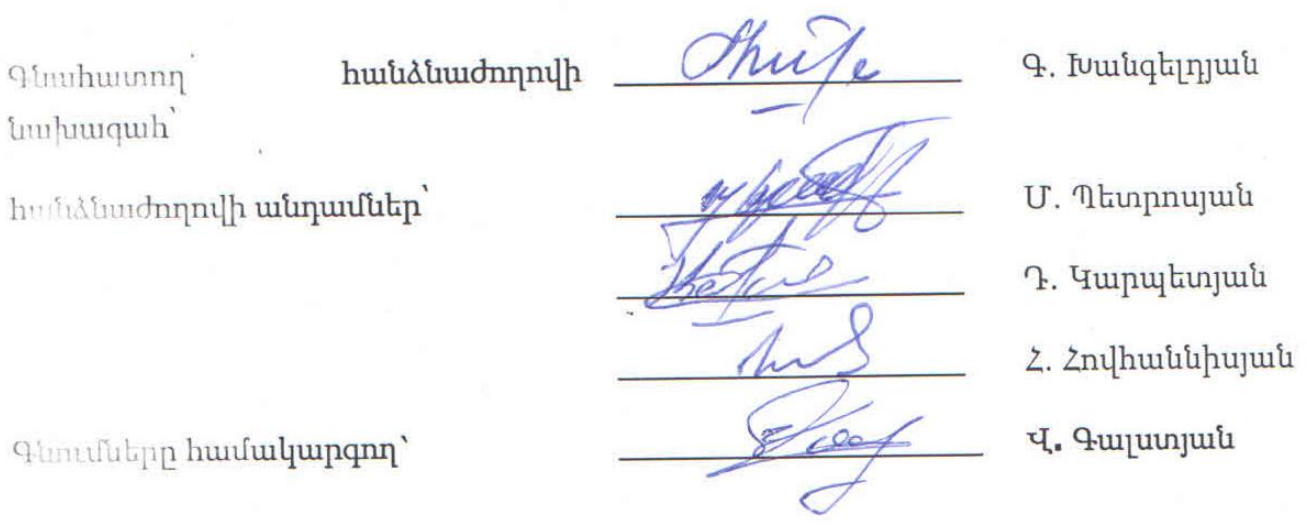 Գնահատող հանձնաժողովի Գ. Խանգելդյան
նախագահ՝
հանձնաժողովի անդամներ՝ Մ. Պետրոսյան
Դ. Կարպետյան
Հ. Հովհաննիսյան
Գնումները համակարգող՝ Վ. Գալստյան